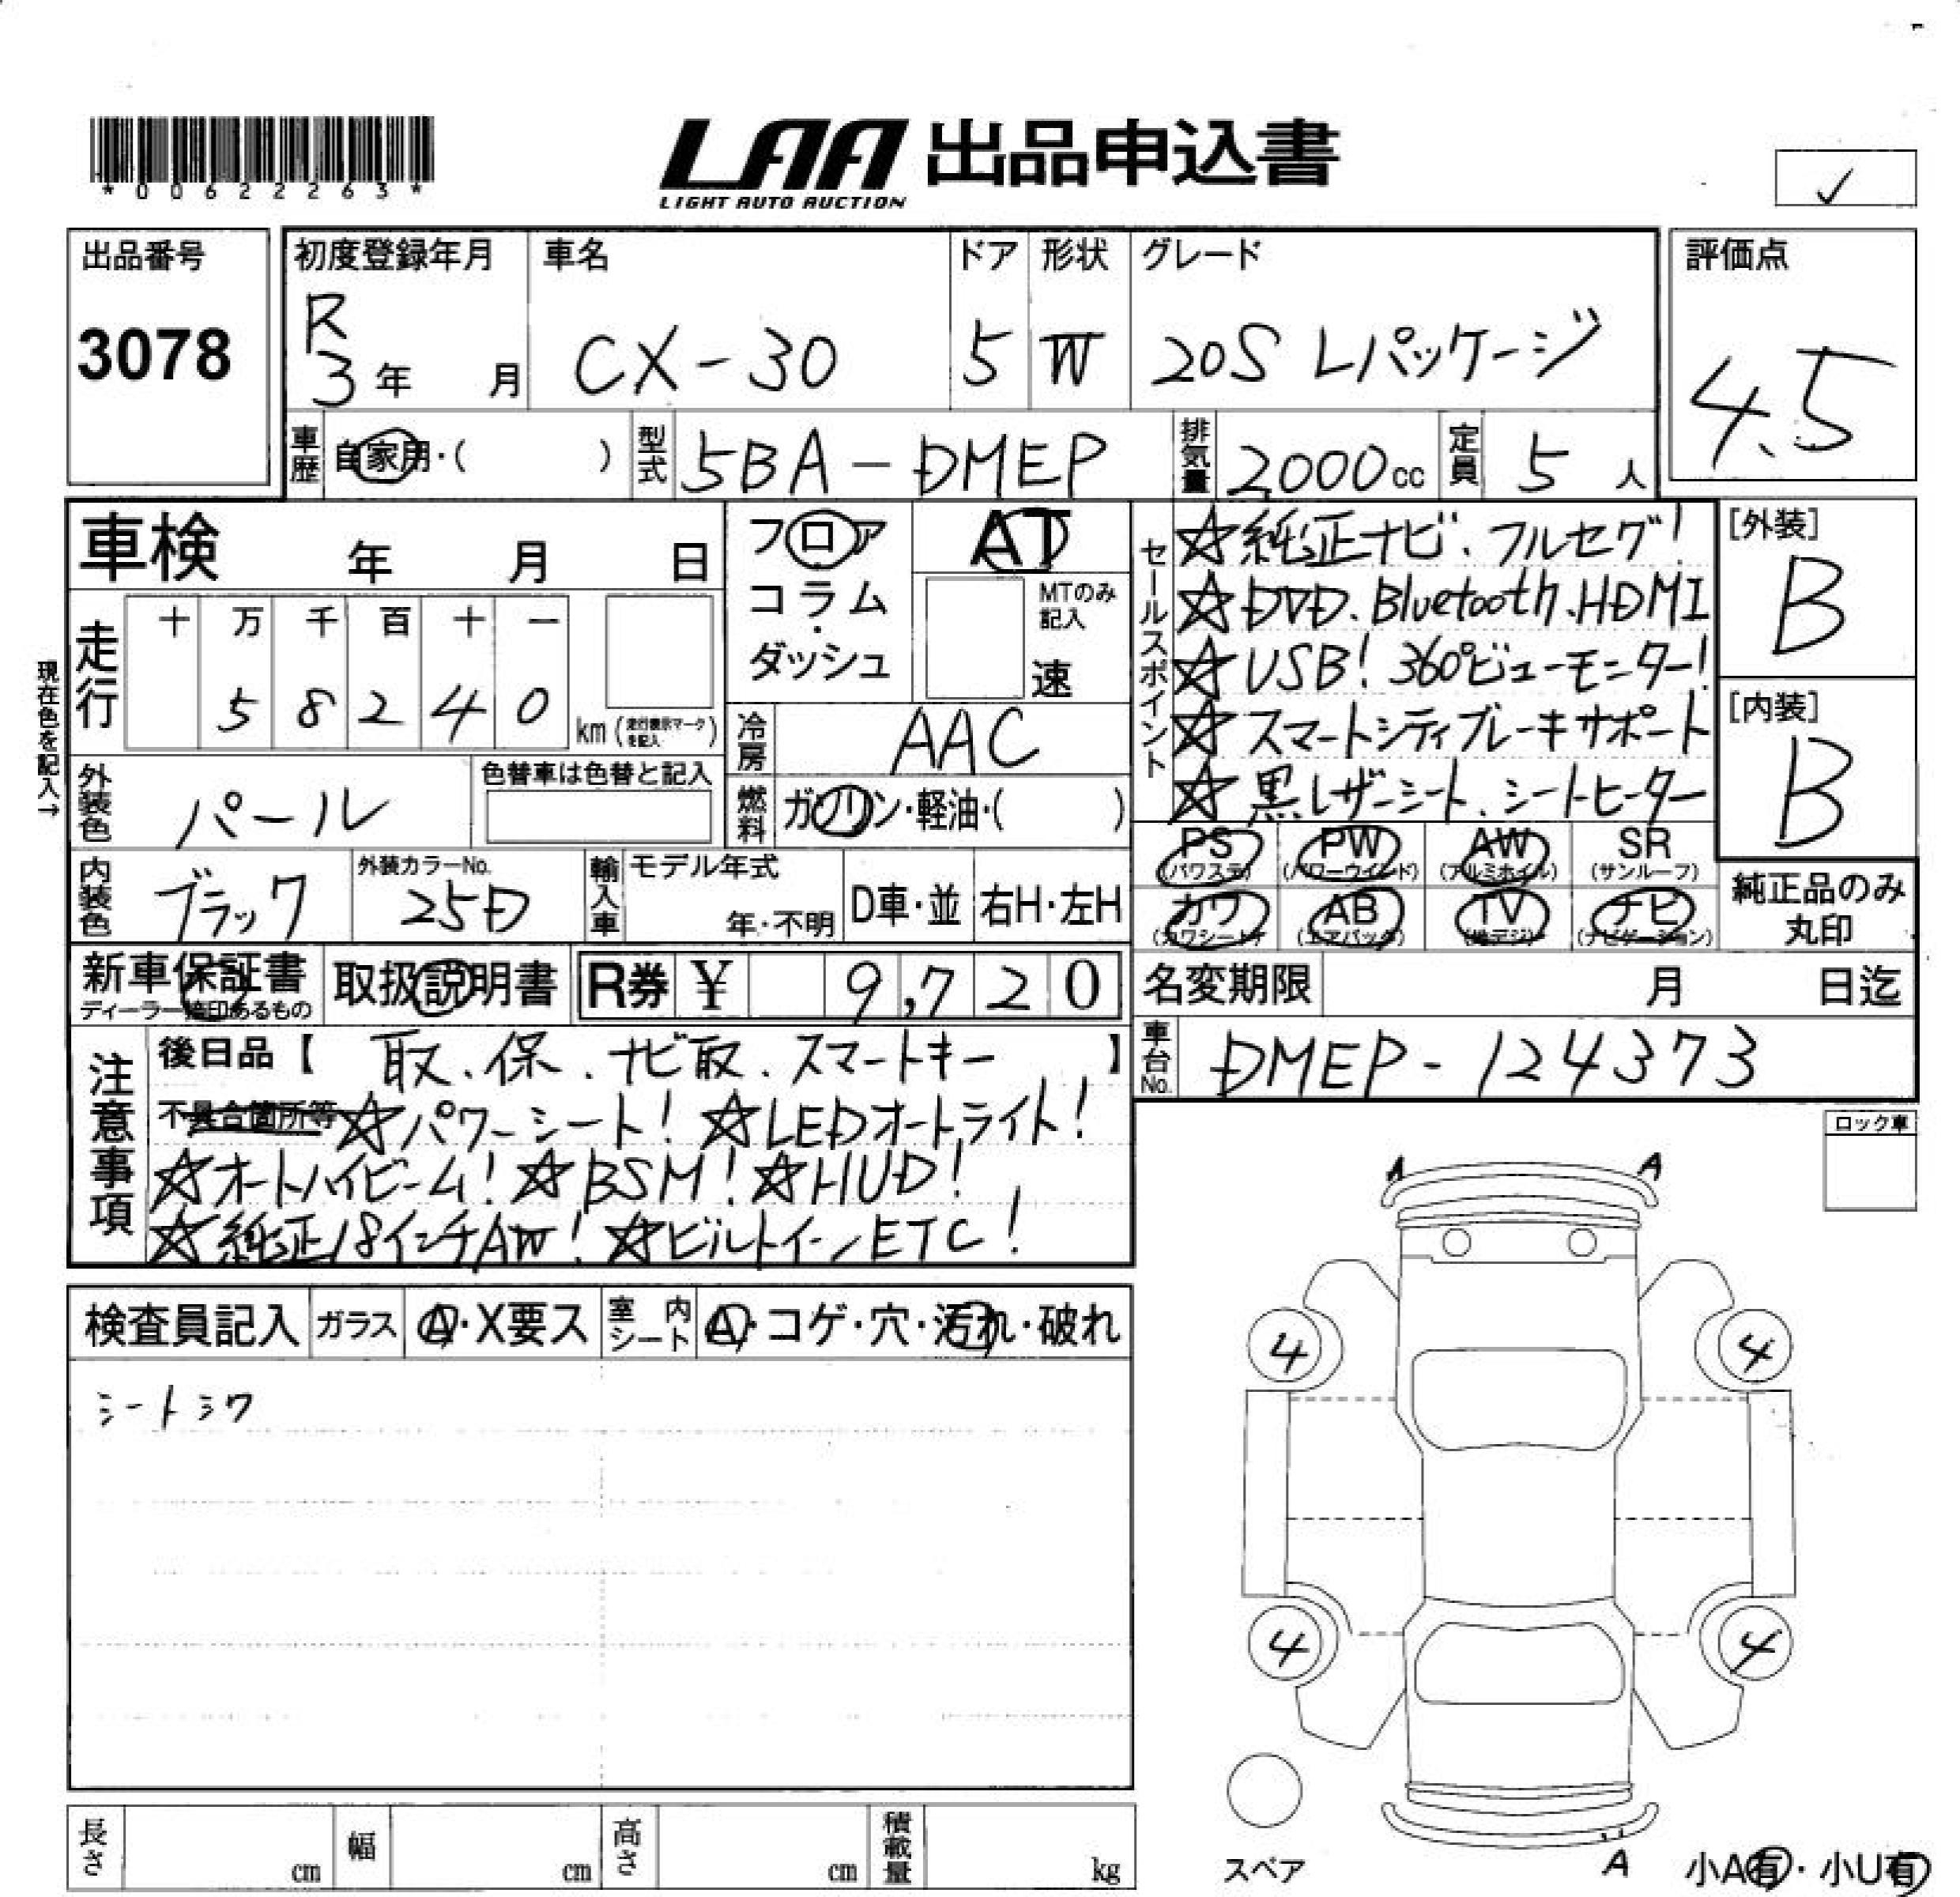 *00622263*
LAA 出品申込書
LIGHT AUTO AUCTION
✓
出品番号
3078
初度登録年月 車名 ドア 形状 グレード 評価点
R
3年 月 CX-30 5 W 20S Lパッケージ 4.5
車歴 自家用・( ) 型式 5BA-DMEP 排気量 2000cc 定員 5人
車検 年 月 日
フロア
コラム
・
ダッシュ
AT
MTのみ
記入
速
現在色を記入→
走行 十 万 千 百 十 一
5 8 2 4 0 km(走行表示マークを記入)
冷房 AAC
燃料 ガソリン・軽油・( )
外装色 パール 色替車は色替と記入
内装色 ブラック 外装カラーNo. 25D
輸入車 モデル年式 年・不明 D車・並 右H・左H
セールスポイント
☆純正ナビ、フルセグ!
☆DVD、Bluetooth、HDMI
☆USB! 360°ビューモニター!
☆スマートシティブレーキサポート
☆黒レザーシート、シートヒーター
[外装]
B
[内装]
B
PS PW AW SR
(パワステ) (パワーウインド) (アルミホイル) (サンルーフ)
カワ AB TV ナビ
(カワシート) (エアバック) (地デジ) (ナビゲーション)
純正品のみ
丸印
新車保証書
ディーラー捺印あるもの
取扱説明書 R券 ¥ 9,720
名変期限 月 日迄
車台No. DMEP-124373
注意事項
後日品【 取、保、ナビ取、スマートキー 】
不具合箇所等 ☆パワーシート! ☆LEDオートライト!
☆オートハイビーム! ☆BSM! ☆HUD!
☆純正18インチAW! ☆ビルトインETC!
ロック車
検査員記入 ガラス A・X要ス 室内シート A・コゲ・穴・汚れ・破れ
シートシワ
A A
4 4
4 4
スペア
A
小A有・小U有
長さ cm 幅 cm 高さ cm 積載量 kg